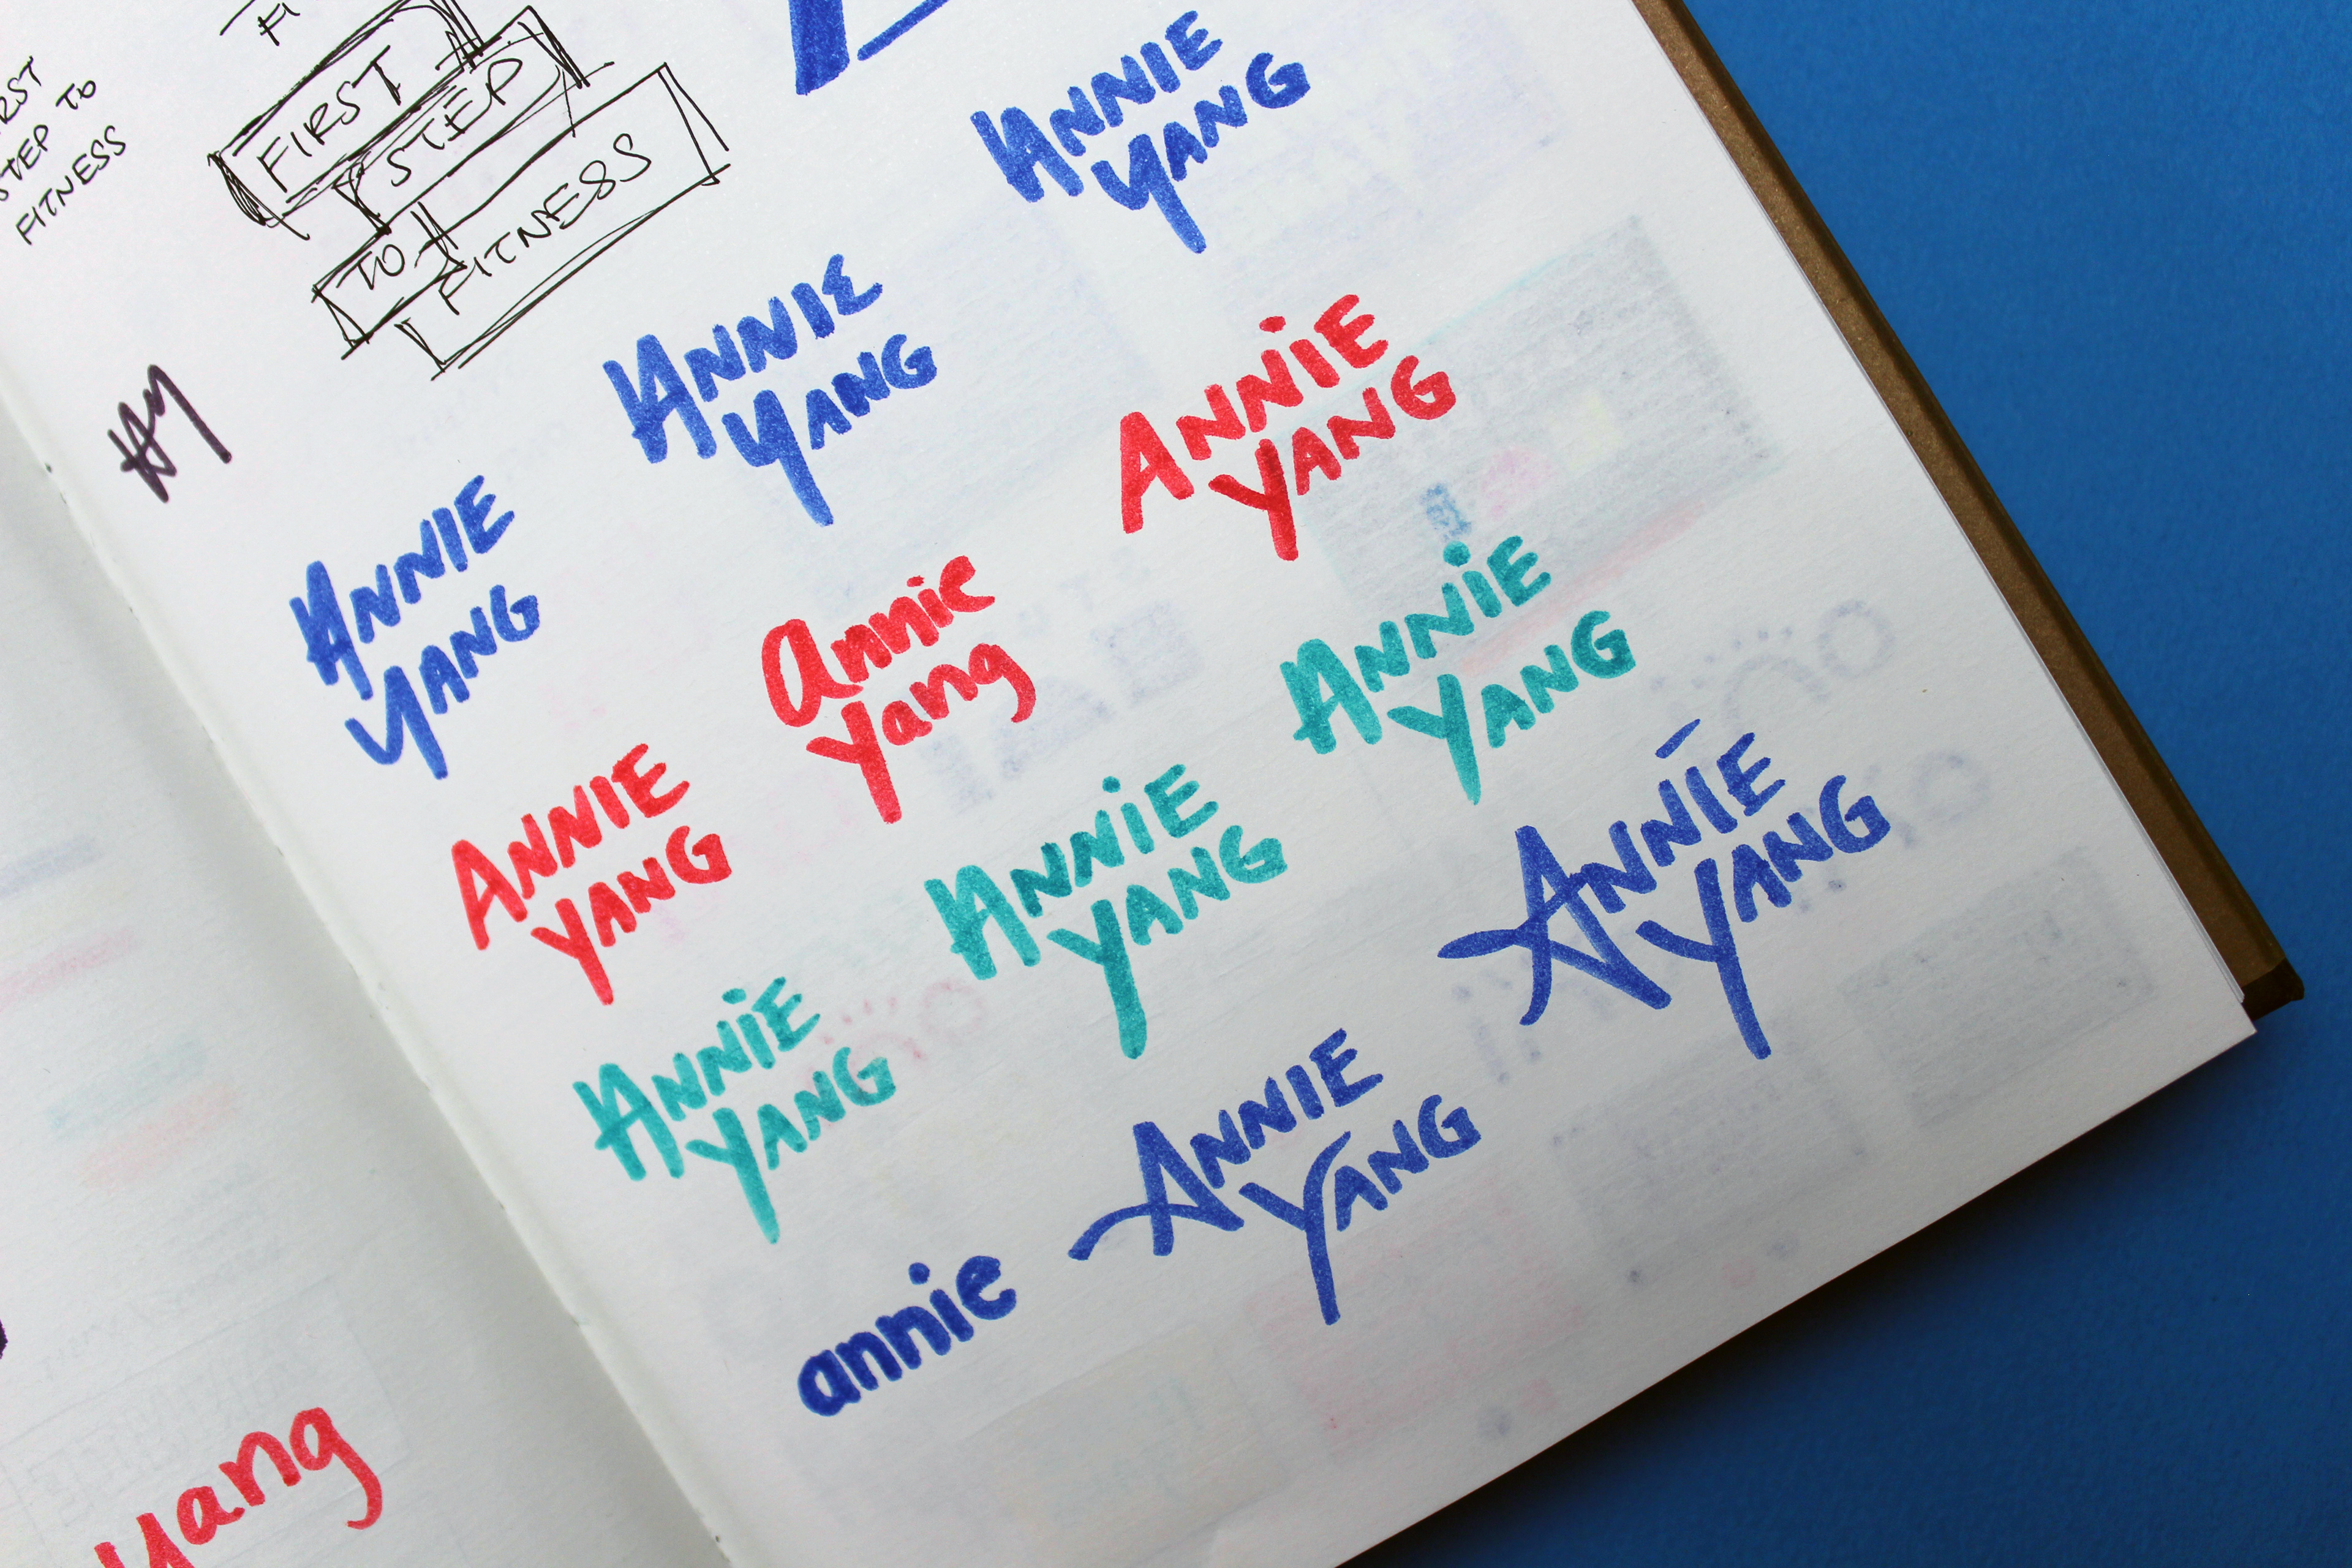 FIRST
STEP TO
FITNESS
FIRST
STEP
TO
FITNESS
AY
ANNIE
YANG
ANNIE
YANG
ANNIE
YANG
ANNiE
YANG
annie
Yang
ANNIE
YANG
ANNiE
YANG
ANNiE
YANG
ANNiE
YANG
ANNIE
YANG
ANNIE
YANG
annie
yang